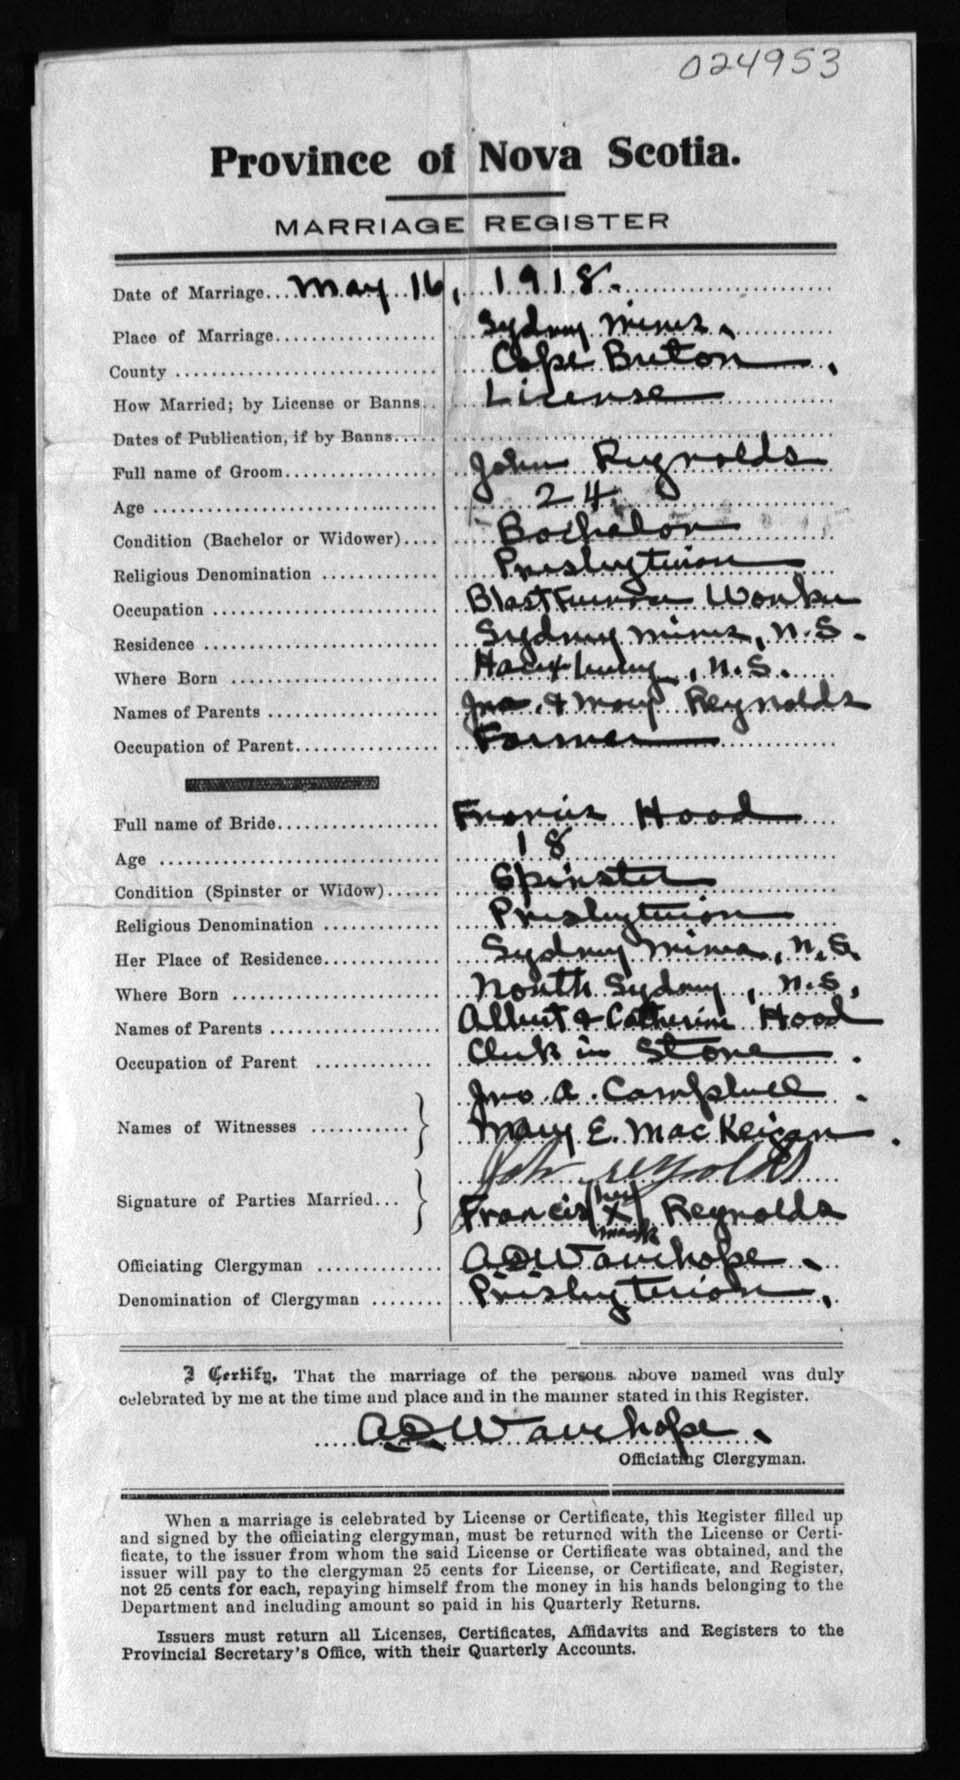 024953
Province of Nova Scotia.
MARRIAGE REGISTER
Date of Marriage... May 16, 1918.
Place of Marriage... Sydney Mines.
County ... Cape Breton.
How Married; by License or Banns.. License
Dates of Publication, if by Banns.....
Full name of Groom... John Reynolds
Age ... 24
Condition (Bachelor or Widower).... Bachelor
Religious Denomination ... Presbyterian
Occupation ... Blast Furnace Worker
Residence ... Sydney Mines, N.S.
Where Born ... , N.S.
Names of Parents ... Jno. & Mary Reynolds
Occupation of Parent... Farmer
Full name of Bride... Francis Hood
Age ... 18
Condition (Spinster or Widow)...... Spinster
Religious Denomination ... Presbyterian
Her Place of Residence... Sydney Mines, N.S.
Where Born ... North Sydney, N.S.
Names of Parents ... Albert & Catherine Hood
Occupation of Parent ... Clerk in Store.
Jno. A. Campbell.
Names of Witnesses ...
Mary E. MacKeigan.
John reynolds
Signature of Parties Married...
Francis (her X mark) Reynolds
Officiating Clergyman ... A D Wauchope.
Denomination of Clergyman ........ Presbyterian.
I Certify, That the marriage of the persons above named was duly
celebrated by me at the time and place and in the manner stated in this Register.
A D Wauchope.
Officiating Clergyman.
When a marriage is celebrated by License or Certificate, this Register filled up
and signed by the officiating clergyman, must be returned with the License or Certi-
ficate, to the issuer from whom the said License or Certificate was obtained, and the
issuer will pay to the clergyman 25 cents for License, or Certificate, and Register,
not 25 cents for each, repaying himself from the money in his hands belonging to the
Department and including amount so paid in his Quarterly Returns.
Issuers must return all Licenses, Certificates, Affidavits and Registers to the
Provincial Secretary's Office, with their Quarterly Accounts.